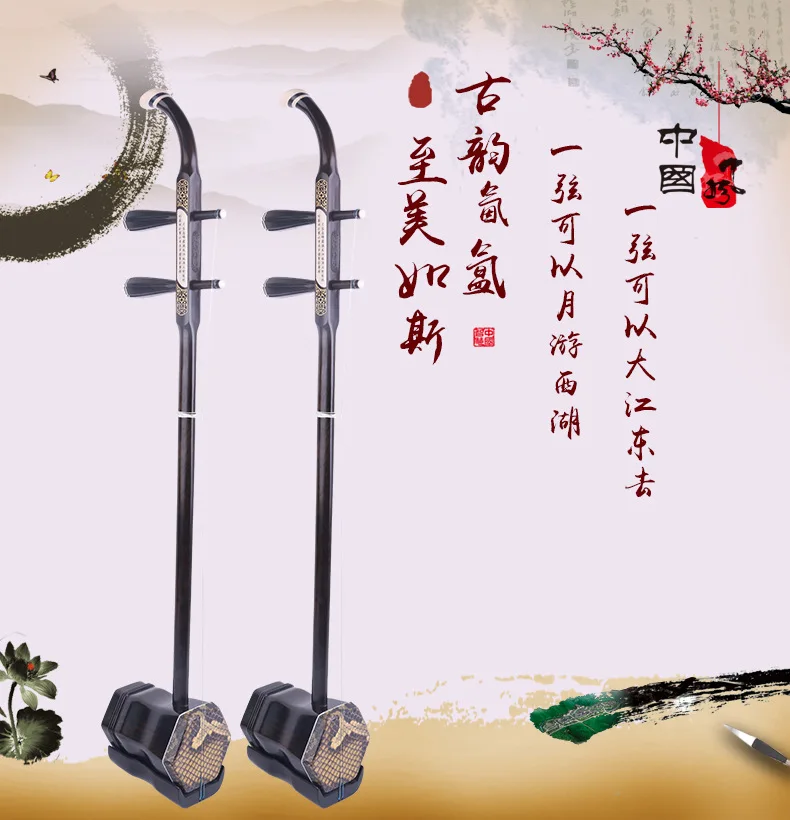 中國風
一弦可以大江东去
一弦可以月游西湖
古韵氤氲
至美如斯